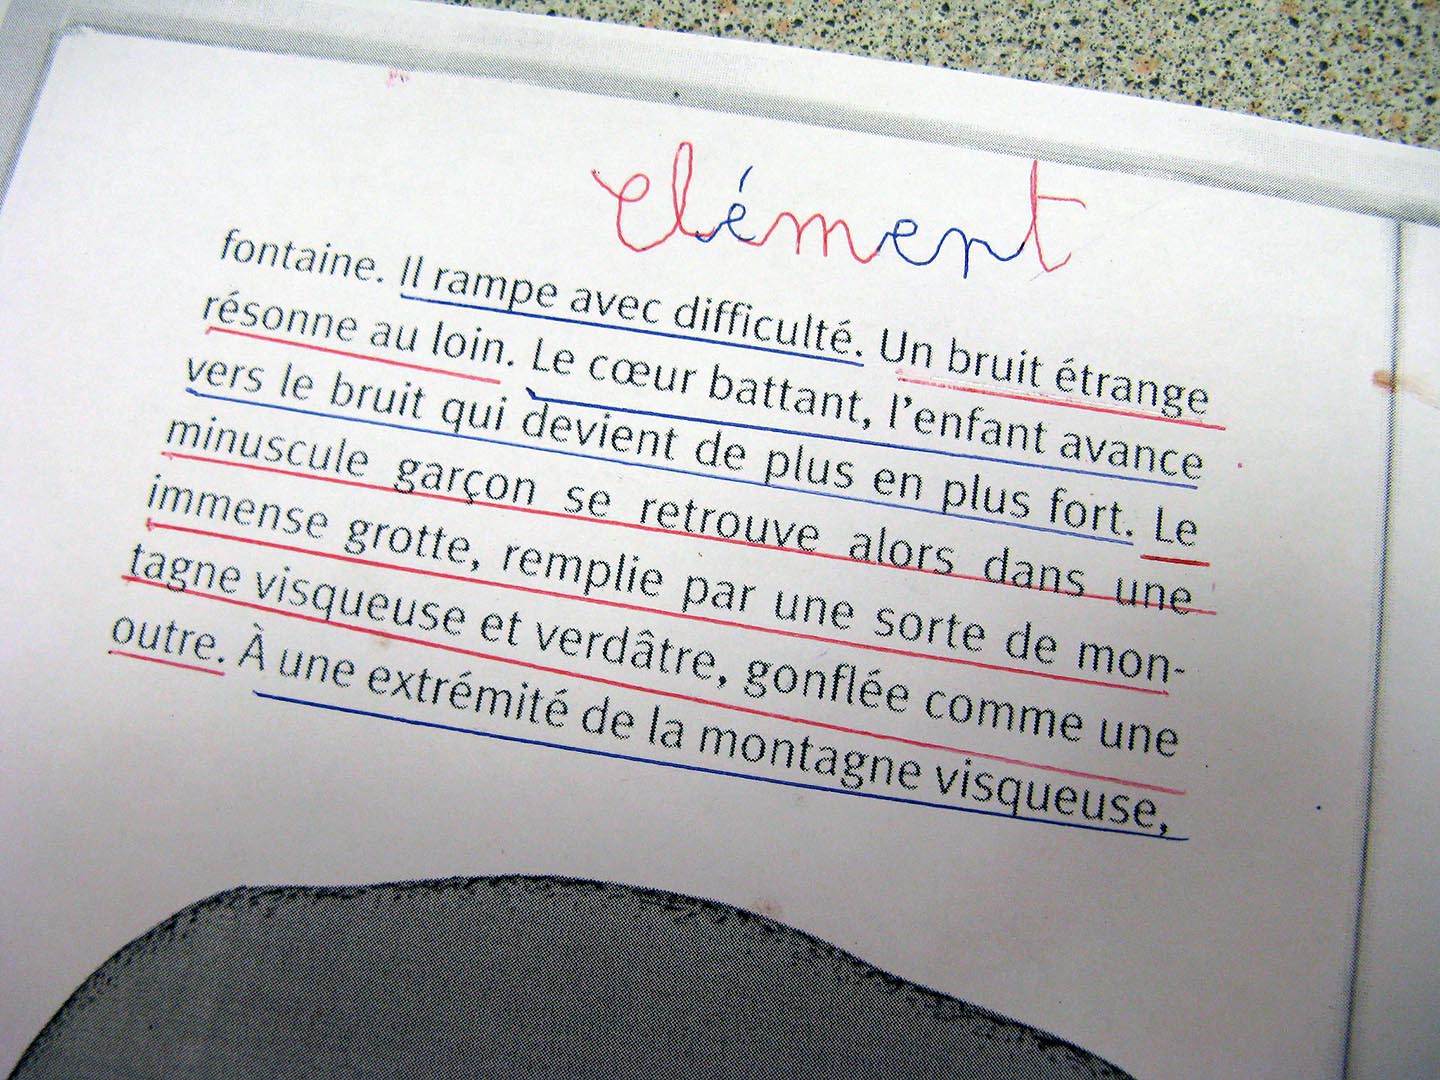 Clément
fontaine. Il rampe avec difficulté. Un bruit étrange
résonne au loin. Le cœur battant, l'enfant avance
vers le bruit qui devient de plus en plus fort. Le
minuscule garçon se retrouve alors dans une
immense grotte, remplie par une sorte de mon-
tagne visqueuse et verdâtre, gonflée comme une
outre. À une extrémité de la montagne visqueuse,